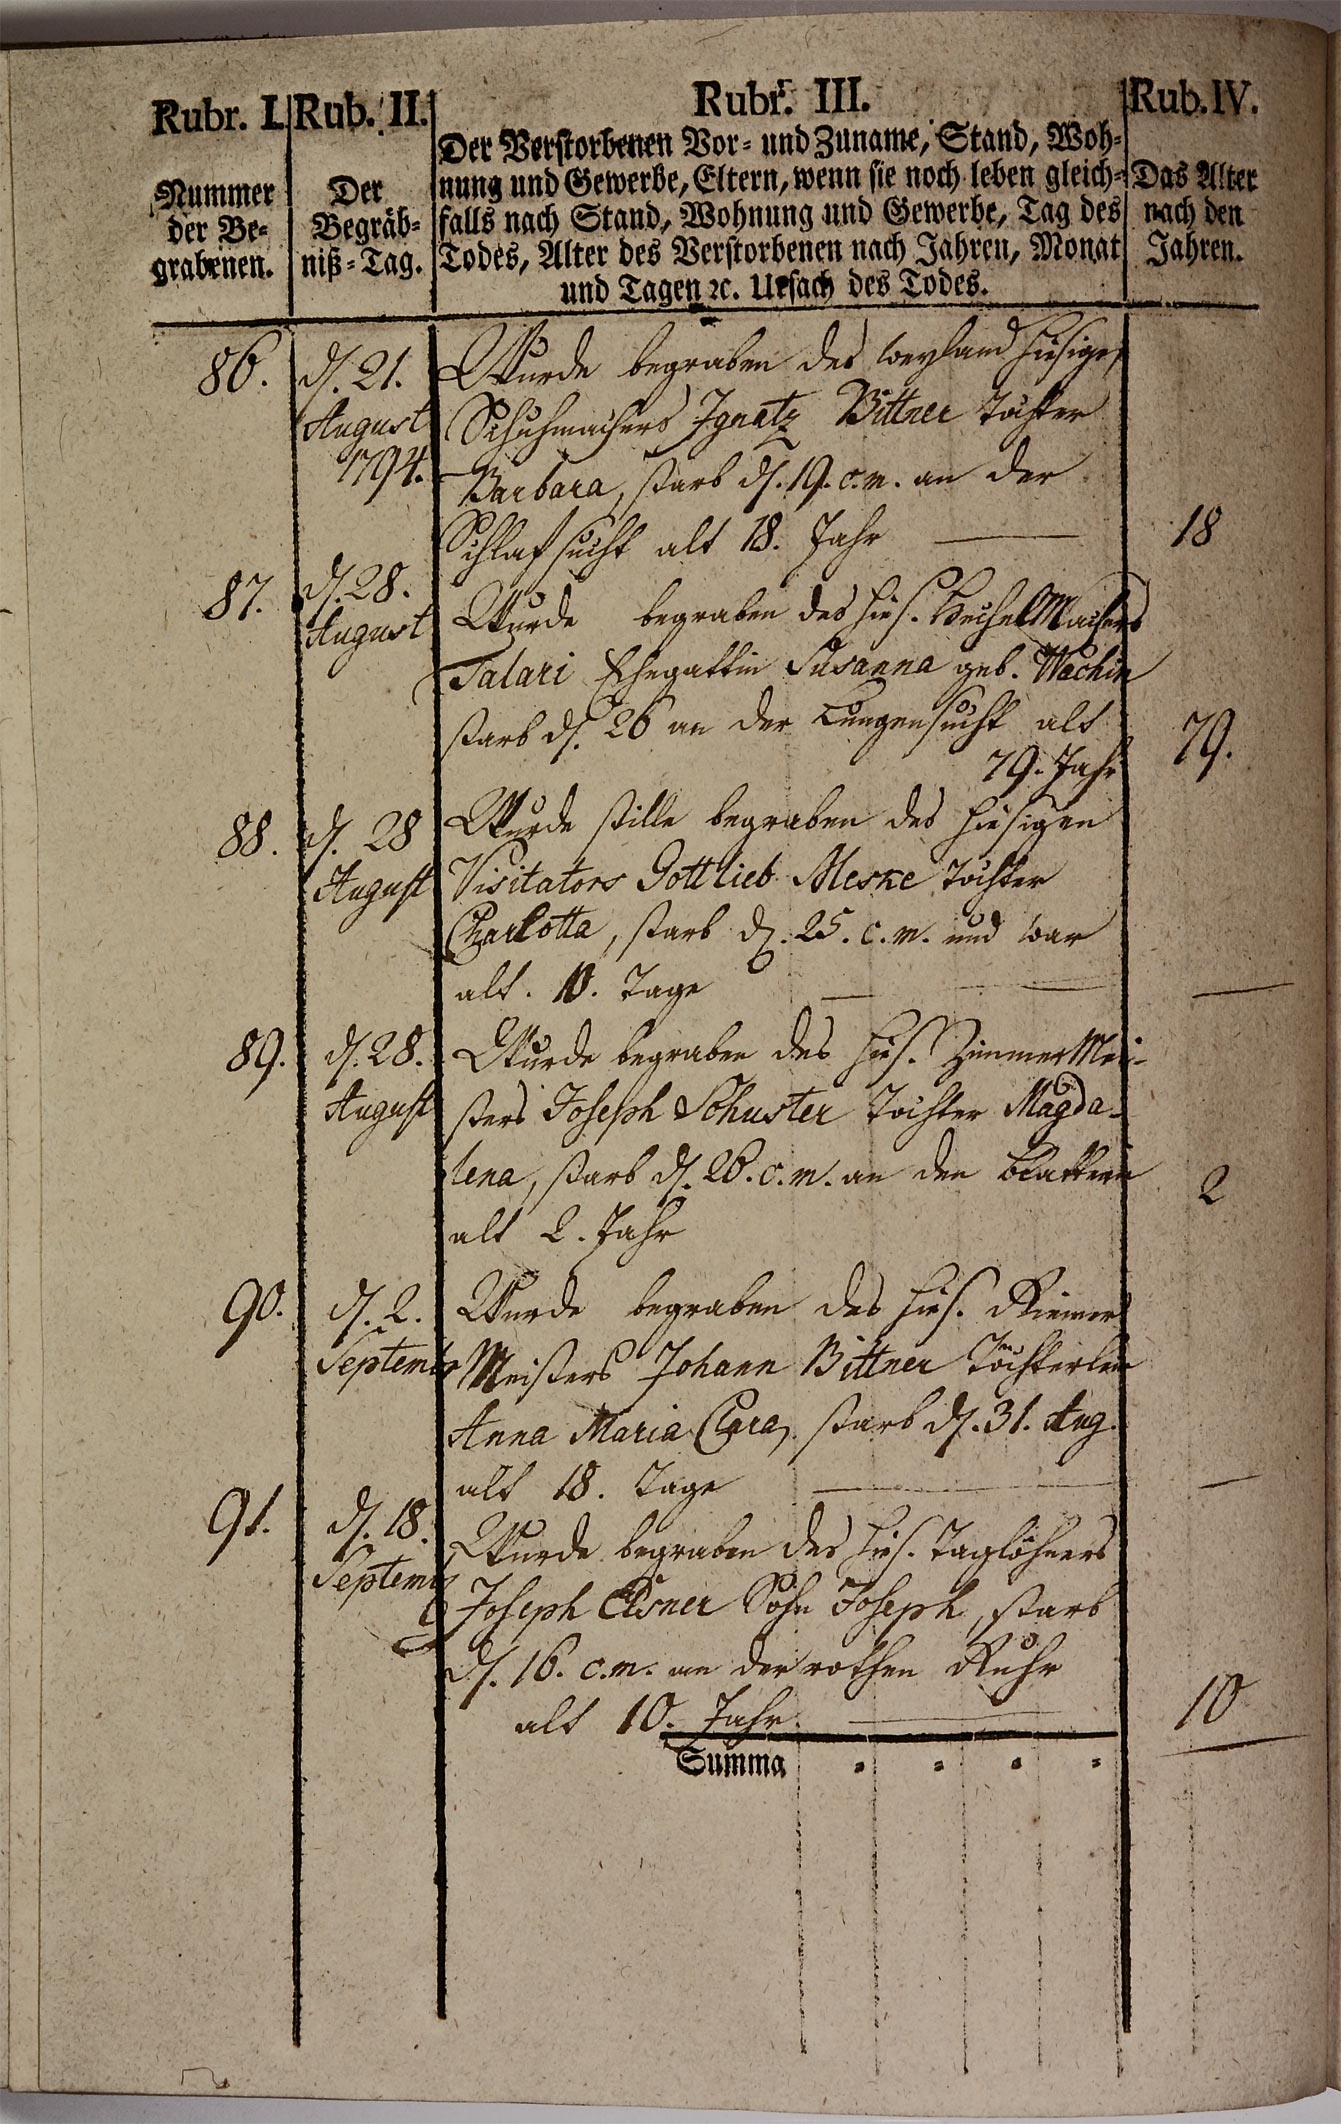 Rubr. I.
Nummer
der Be-
grabenen.
Rub. II.
Der
Begräb-
niß-Tag.
Rubr. III.
Der Verstorbenen Vor- und Zuname, Stand, Woh-
nung und Gewerbe, Eltern, wenn sie noch leben gleich-
falls nach Stand, Wohnung und Gewerbe, Tag des
Todes, Alter des Verstorbenen nach Jahren, Monat
und Tagen ꝛc. Ursach des Todes.
Rub. IV.
Das Alter
nach den
Jahren.
86.
d. 21.
August
1794.
Wurde begraben des weyland hiesigen
Schuhmachers Ignatz Bittner Tochter
Barbara, starb d. 19. c. m. an der
Schlafsucht alt 18. Jahr
18
87.
d. 28.
August
Wurde begraben des hies. HechelMachers
Talari Ehegattin Susanna geb.
starb d. 26 an der Lungensucht alt
79. Jahr
79.
88.
d. 28
August
Wurde stille begraben des hiesigen
Visitators Gottlieb Meske Tochter
Charlotta, starb d. 25. c. m. und war
alt. 10. Tage
89.
d. 28.
August
Wurde begraben des hies. ZimmerMei-
sters Joseph Schuster Tochter Magda-
lena, starb d. 26. c. m. an den Blattern
alt 2. Jahr
2
90.
d. 2.
Septembr
Wurde begraben des hies. Riemer
Meisters Johann Bittner Töchterlein
Anna Maria Clara, starb d. 31. Aug.
alt 18. Tage
91.
d. 18.
Septemb
Wurde begraben des hies. Taglöhners
Joseph Elsner Sohn Joseph, starb
d. 16. c. m. an der rothen Ruhr
alt 10. Jahr
10
Summa